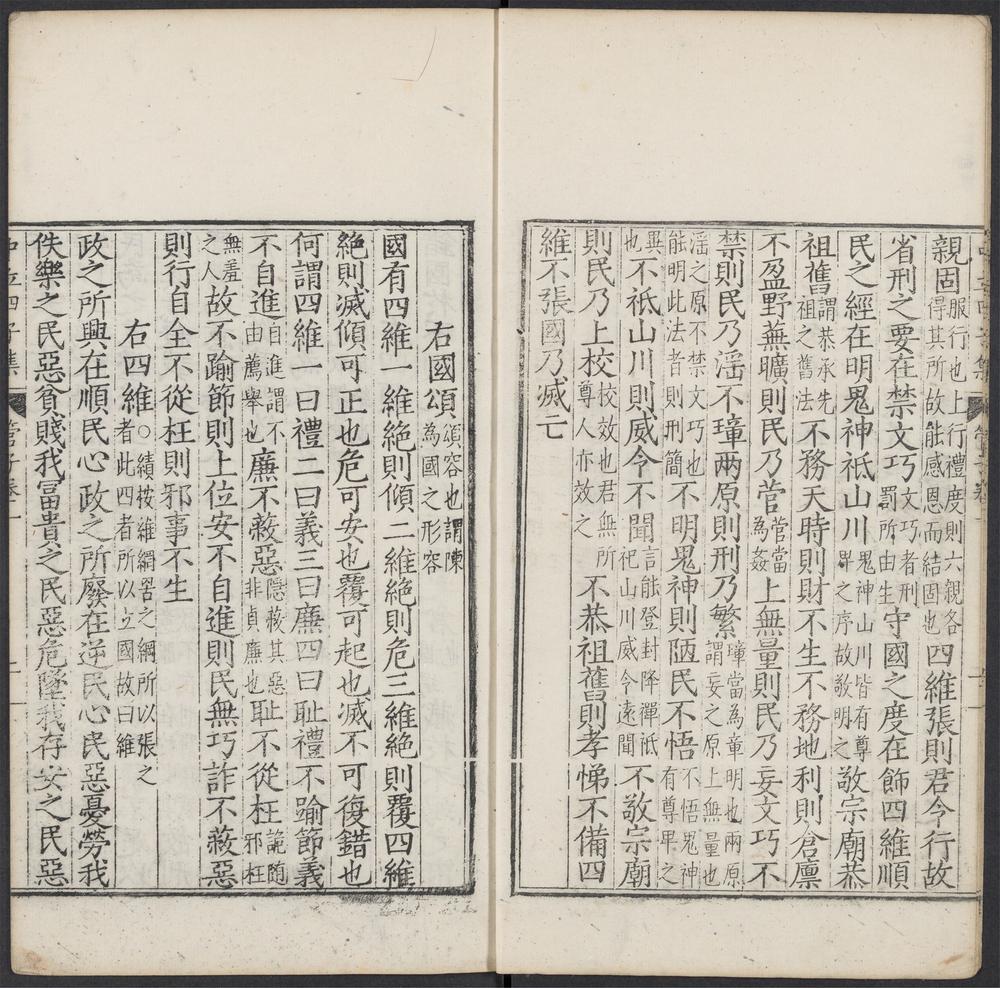 親固服行也上行禮度則六親各得其所故能感恩而結固也四維張則君令行故
省刑之要在禁文巧文巧者刑罰所由生守國之度在飾四維順
民之經在明鬼神祗山川鬼神山川皆有尊卑之序故敬明之敬宗廟恭
祖舊謂恭承先祖之舊法不務天時則財不生不務地利則倉廩
不盈野蕪曠則民乃菅菅當為姦上無量則民乃妄文巧不
禁則民乃滛不璋兩原則刑乃繁璋當為章明也兩原謂妄之原上無量也
滛之原不禁文巧也能明此法者則刑簡不明鬼神則陋民不悟不悟鬼神有尊卑之
異也不祗山川則威令不聞言能登封降禪祗祀山川威令遠聞不敬宗廟
則民乃上校校效也君無所尊人亦效之不恭祖舊則孝悌不備四
維不張國乃滅亡
右國頌頌容也謂陳為國之形容
國有四維一維絶則傾二維絶則危三維絶則覆四維
絶則滅傾可正也危可安也覆可起也滅不可復錯也
何謂四維一曰禮二曰義三曰廉四曰恥禮不踰節義
不自進自進謂不由薦舉也廉不蔽惡隱蔽其惡非貞廉也恥不從枉詭隨邪枉
無羞之人故不踰節則上位安不自進則民無巧詐不蔽惡
則行自全不從枉則邪事不生
右四維○績按維網罟之綱所以張之者此四者所以立國故曰維
政之所興在順民心政之所廢在逆民心民惡憂勞我
佚樂之民惡貧賤我冨貴之民惡危墜我存安之民惡
中立四子集 管子卷一